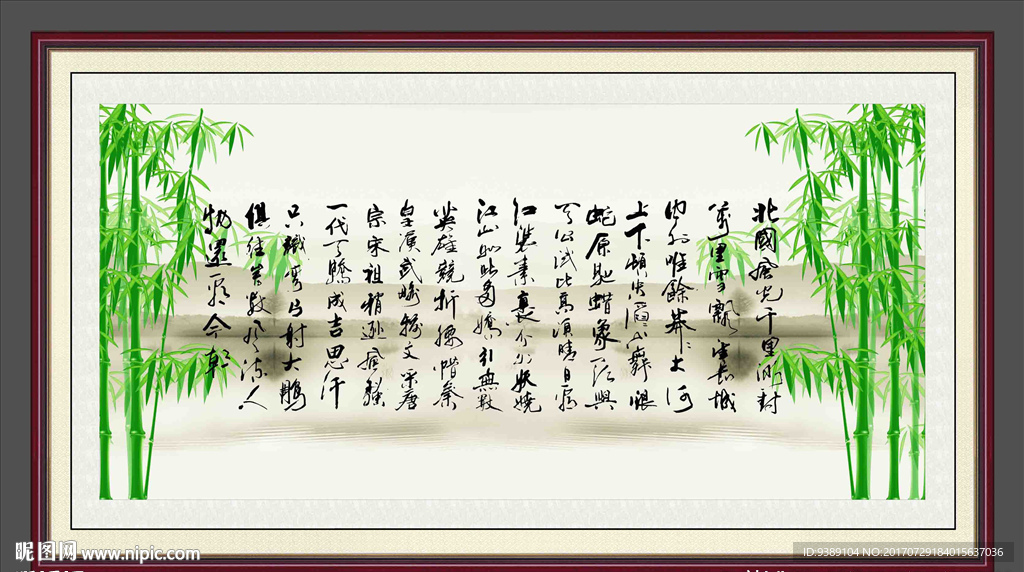 北國風光千里冰封
萬里雪飄望長城
內外唯餘莽々大河
上下頓失滔々山舞銀
蛇原馳蜡象欲與
天公試比高須晴日看
紅裝素裹分外妖嬈
江山如此多嬌引無數
英雄競折腰惜秦
皇漢武略輸文采唐
宗宋祖稍遜風騷
一代天驕成吉思汗
只識彎弓射大鵰
俱往矣數風流人
物還看今朝
昵图网 www.nipic.com
ID:9389104 NO:20170729184015637036